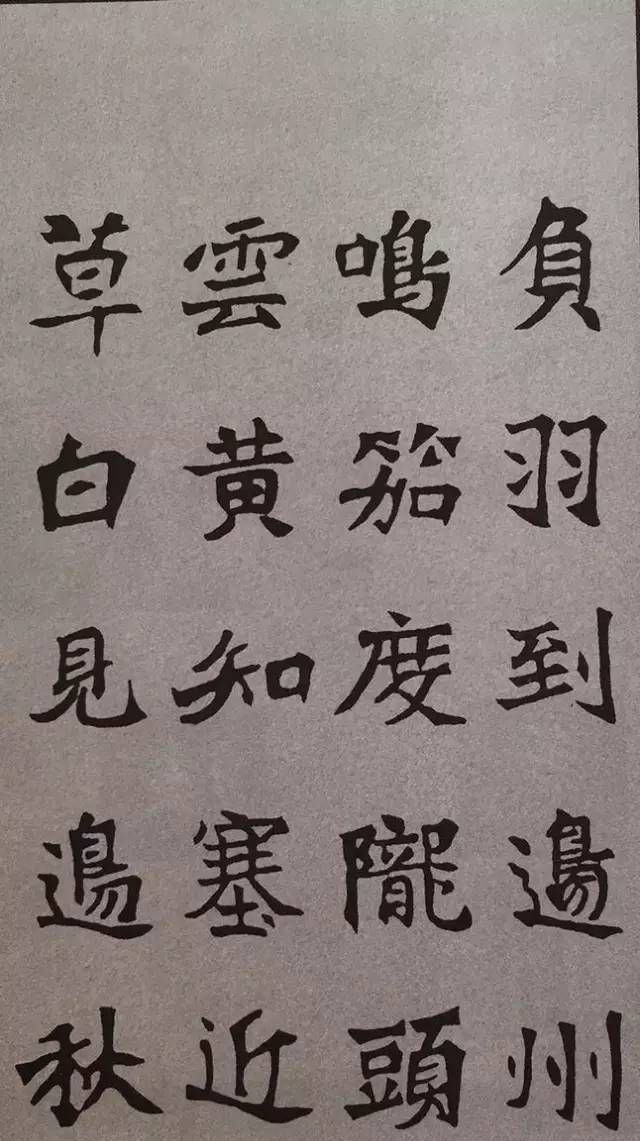 負羽到邊州
鳴笳度隴頭
雲黃知塞近
草白見邊秋